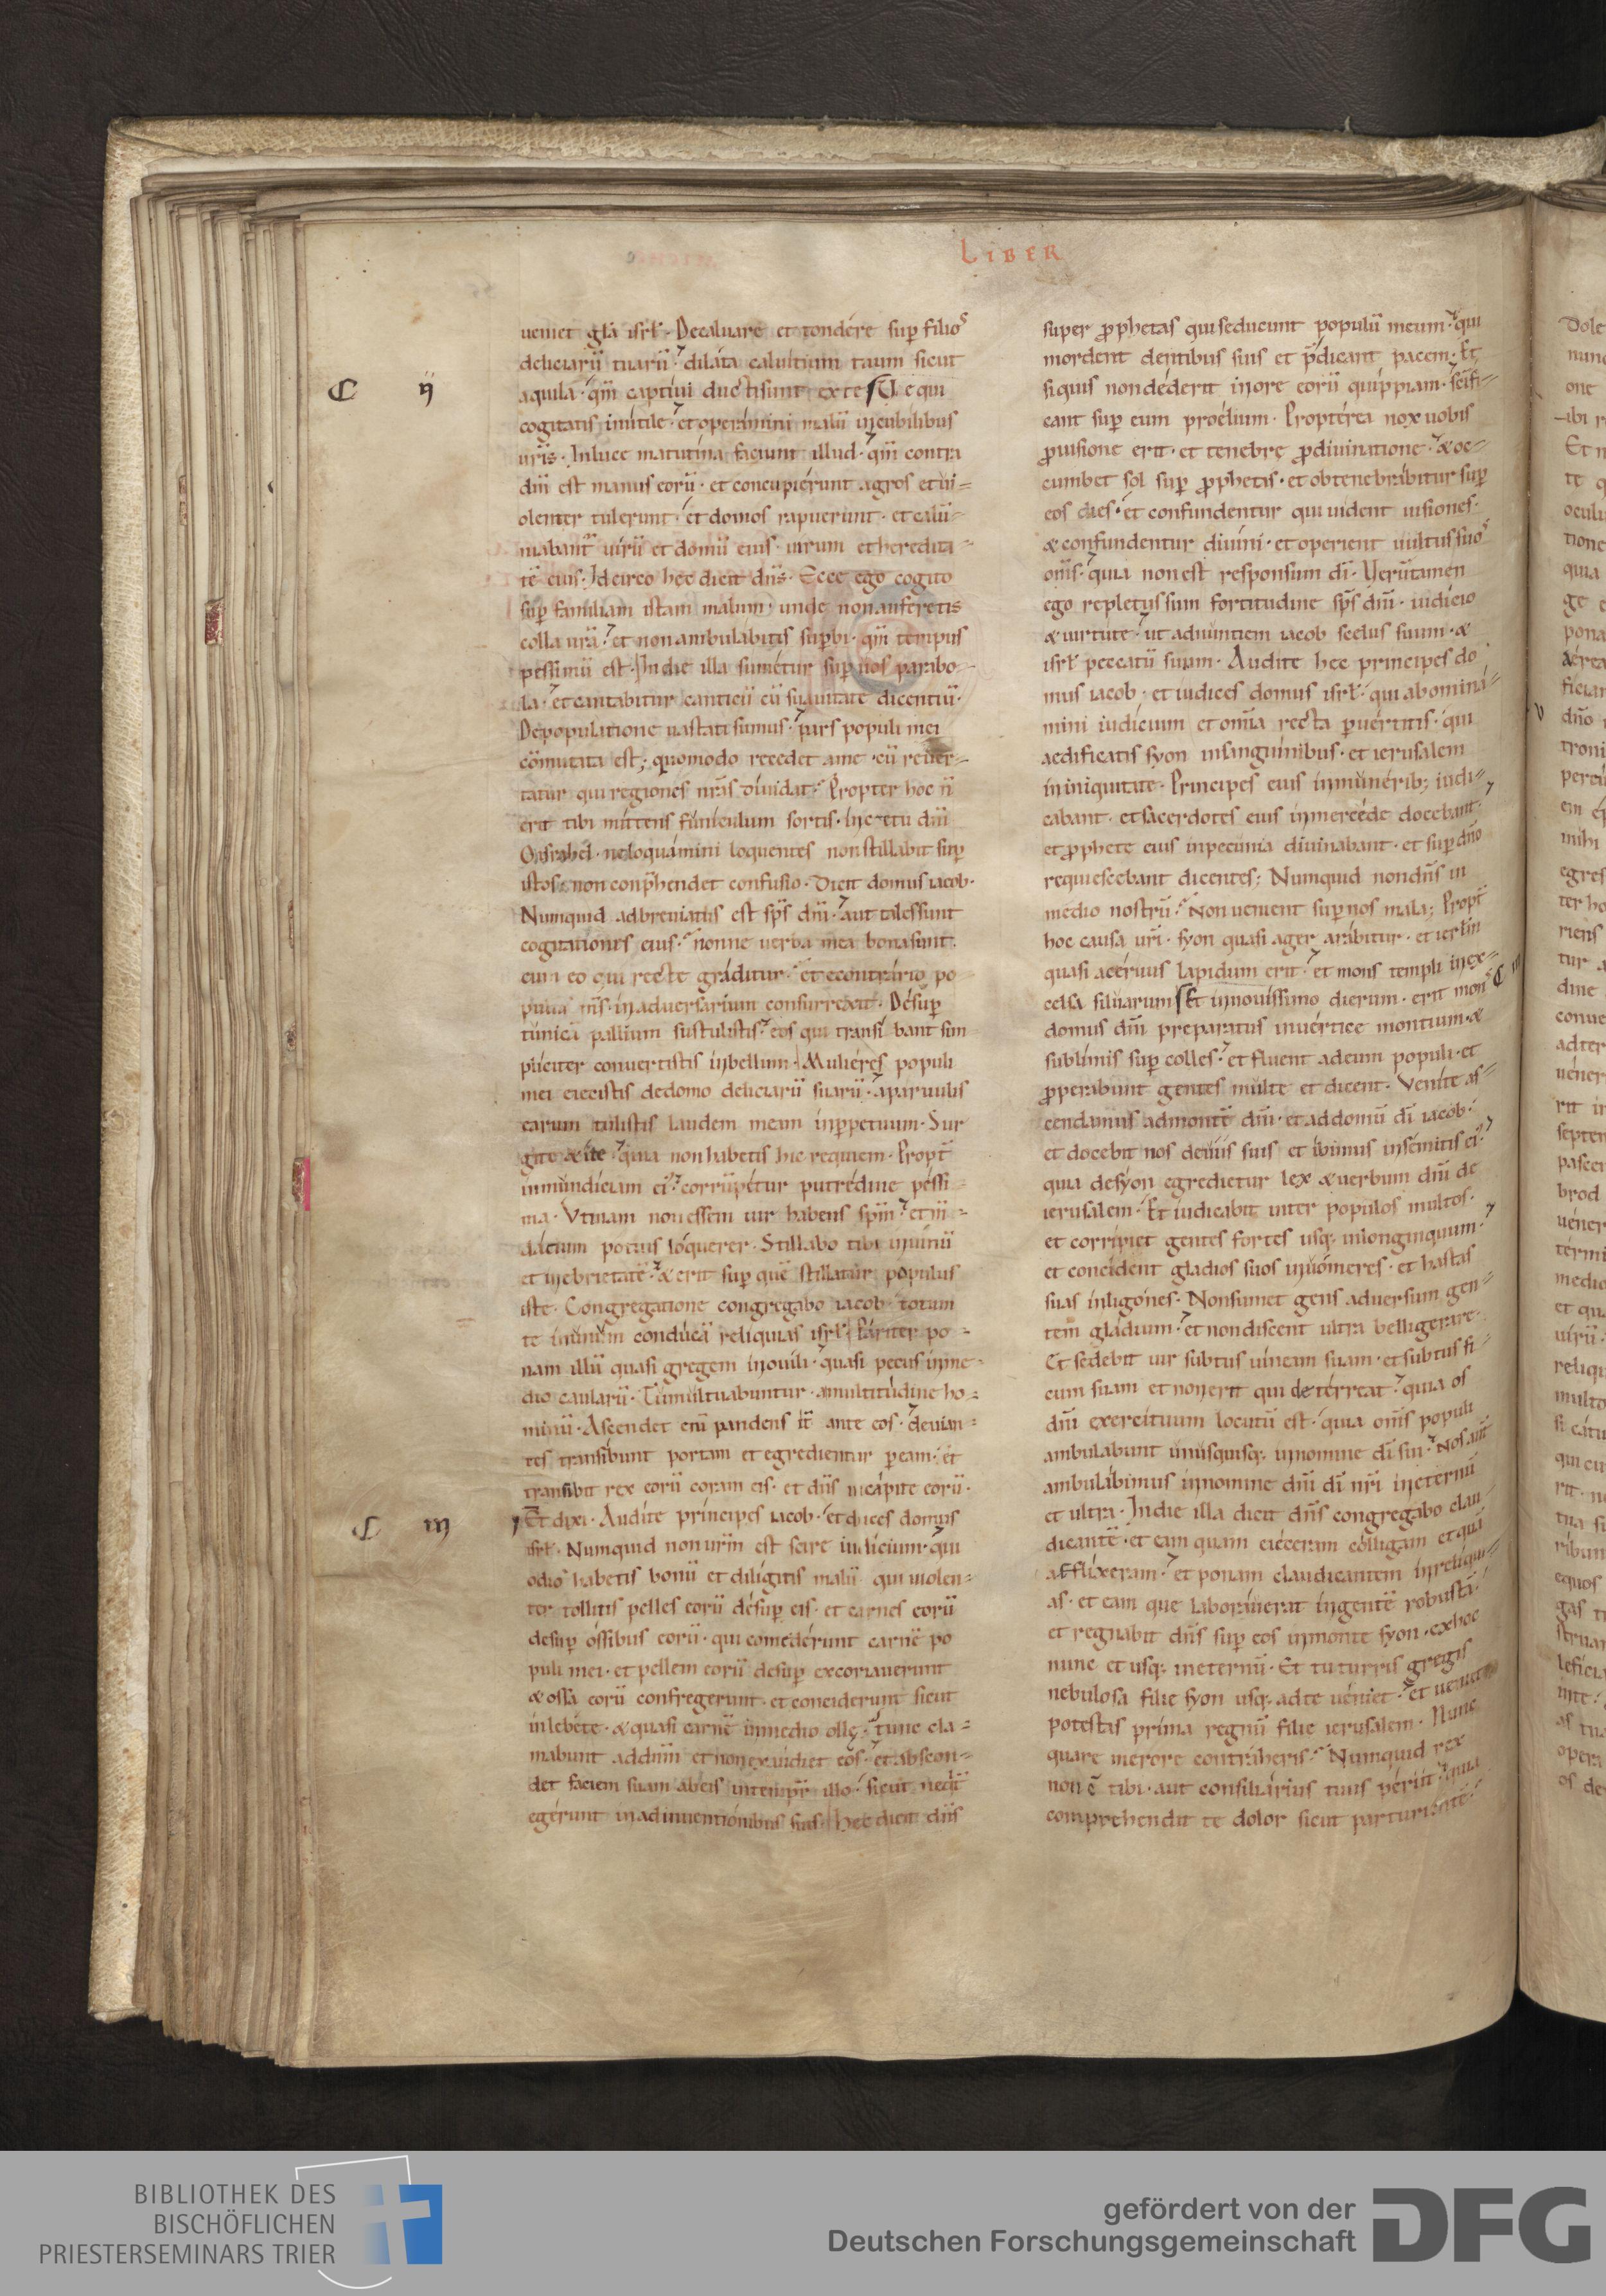 LIBER
ueniet gl̄a isrł. Decaluare et tondere sup filios
deliciarū tuarū. dilata caluitium tuum sicut
aquila. qm̄ captiui ducti sunt ex te. Ve qui
C ij
cogitatis inutile. et operamini malū in cubilibus
uris. In luce matutina faciunt illud. qm̄ contra
dm̄ est manus eorū. et concupierunt agros et ui=
olenter tulerunt. et domos rapuerunt. et calū-
niabant uirū et domū eius. uirum et heredita-
tē eius. Idcirco hec dicit dn̄s. Ecce ego cogito
sup familiam istam malum. unde non auferetis
colla urā. et non ambulabitis supbi. qm̄ tempus
pessimū est. In die illa sumetur sup uos parabo-
la. et cantabitur canticū cū suauitate dicentiū.
Depopulatione uastati sumus. pars populi mei
cōmutata est; quomodo recedet a me. cū reuer-
tatur qui regiones nrās diuidat. Propter hoc n̄
erit tibi mittens funiculum sortis. in cetu dn̄i
ne loquamini loquentes non stillabit sup
istos. non conp̄hendet confusio. Dicit domus iacob.
Numquid adbreuiatus est sp̄s dn̄i. aut tales sunt
cogitationes eius. nonne uerba mea bona sunt.
cum eo qui recte graditur. et econtrario po
pulus ms. in aduersarium consurrexit. Desup
tunicā pallium sustulistis. eos qui transi bant sim
pliciter conuertistis in bellum. Mulieres populi
mei eiecistis de domo deliciarū suarū. a paruulis
earum tulistis laudem meam in ppetuum. Sur
gite & ite. quia non habetis hic requiem. Propt
inmundiciam ei. corrūpetur putredine pessi
ma. Vtinam non essem uir habens spm̄. et m-
dacium potius loquerer. Stillabo tibi in uinū
et in ebrietatē. & erit sup quē stillatur populus
iste. Congregatione congregabo iacob totum
te in unum conducā reliquias isrł. Pariter po-
nam illū quasi gregem in ouili. quasi pecus in me-
dio caularū. Tumultuabuntur a multitudine ho-
minū. Ascendet eni pandens it ante eos. deuian-
tes transibunt portam et egredientur p eam. et
transibit rex eorū coram eis. et dn̄s in capite eorū.
C iij
Et dixi. Audite principes iacob. et duces domus
isrł. Numquid non urm̄ est scire iudicium. qui
odio habetis bonū et diligitis malū. qui uiolen-
ter tollitis pelles eorū desup eis. et carnes eorū
desup ossibus eorū. qui comederunt carnē po
puli mei. et pellem eorū desup excoriauerunt
& ossa eorū confregerunt. et conciderunt sicut
in lebete. & quasi carnē in medio ollę. tunc cla-
mabunt ad dnm̄ et non exaudiet eos. et abscon-
det faciem suam ab eis in tempr illo. sicut neq̄
egerunt in adinuentionibus suis. Hec dicit dn̄s
super pphetas qui seducunt populū meum. qui
mordent dentibus suis et p̄dicant pacem. Et
si quis non dederit in ore eorū quippiam. scīfi-
cant sup eum proelium. Propterea nox uobis
p uisione erit. et tenebre p diuinatione. & oc-
cumbet sol sup pphetis. et obtenebrabitur sup
eos dies. et confundentur qui uident uisiones.
& confundentur diuini. et operient uultus suos
oms. quia non est responsum dī. Verūtamen
ego repletus sum fortitudine sp̄s dn̄i. iudicio
& uirtute. ut adnuntiem iacob scelus suum. &
isrł peccatū suum. Audite hec principes do
mus iacob. et iudices domus isrł. qui abomina-
mini iudicium et omīa recta puertitis. qui
aedificatis syon in sanguinibus. et ierusalem
in iniquitate. Principes eius in munerib; iudi-
cabant. et sacerdotes eius in mercede docebant.
et pphete eius in pecunia diuinabant. et sup dn̄o
requiescebant dicentes; Numquid non dn̄s in
medio nostrū. Non uenient sup nos mala; Propt
hoc causa urī. syon quasi ager arabitur. et ierlm̄
quasi aceruus lapidum erit. et mons templi in ex-
celsa siluarum. Et in nouissimo dierum. erit mons
domus dn̄i preparatus in uertice montium. &
sublimis sup colles. et fluent ad eum populi. et
pperabunt gentes multe et dicent. Venite as-
cendamus ad montē dn̄i. et ad domū dī iacob.
et docebit nos de uiis suis et ibimus in semitis ei.
quia de syon egredietur lex & uerbum dn̄i de
ierusalem. Et iudicabit inter populos multos.
et corripiet gentes fortes usq; in longinquum.
et concident gladios suos in uomeres. et hastas
suas in ligones. Non sumet gens aduersum gen-
tem gladium. et non discent ultra belligerare.
Et sedebit uir subtus uineam suam. et subtus fi-
cum suam et non erit qui deterreat. quia os
dn̄i exercituum locutū est. quia om̄s populi
ambulabunt unusquisq; in nomine dī sui. Nos aut
ambulabimus in nomine dn̄i dī nrī in eternū
et ultra. In die illa dicit dn̄s congregabo clau
dicantē. et eam quam eieceram colligam et quā
afflixeram. et ponam claudicantem in reliqui-
as. et eam que laborauerat in gentē robustā.
et regnabit dn̄s sup eos in monte syon. ex hoc
nunc et usq; in eternū. Et tu turris gregis
nebulosa filie syon usq; ad te ueniet. et ueniet
potestas prima regnū filie ierusalem. Nunc
quare merore contraheris. Numquid rex
non ē tibi. aut consiliarius tuus periit. quia
comprehendit te dolor sicut parturientē.
BIBLIOTHEK DES
BISCHÖFLICHEN
PRIESTERSEMINARS TRIER
gefördert von der
Deutschen Forschungsgemeinschaft
DFG